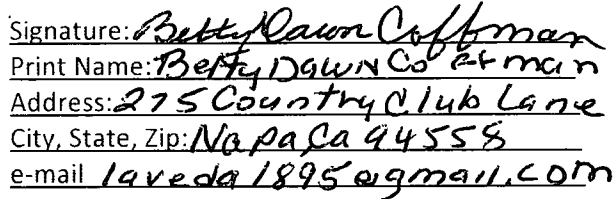 Signature: Betty Dawn Coffman
Print Name: Betty Dawn Coffman
Address: 275 Country Club Lane
City, State, Zip: Napa, Ca 94558
e-mail laveda1895@gmail.com